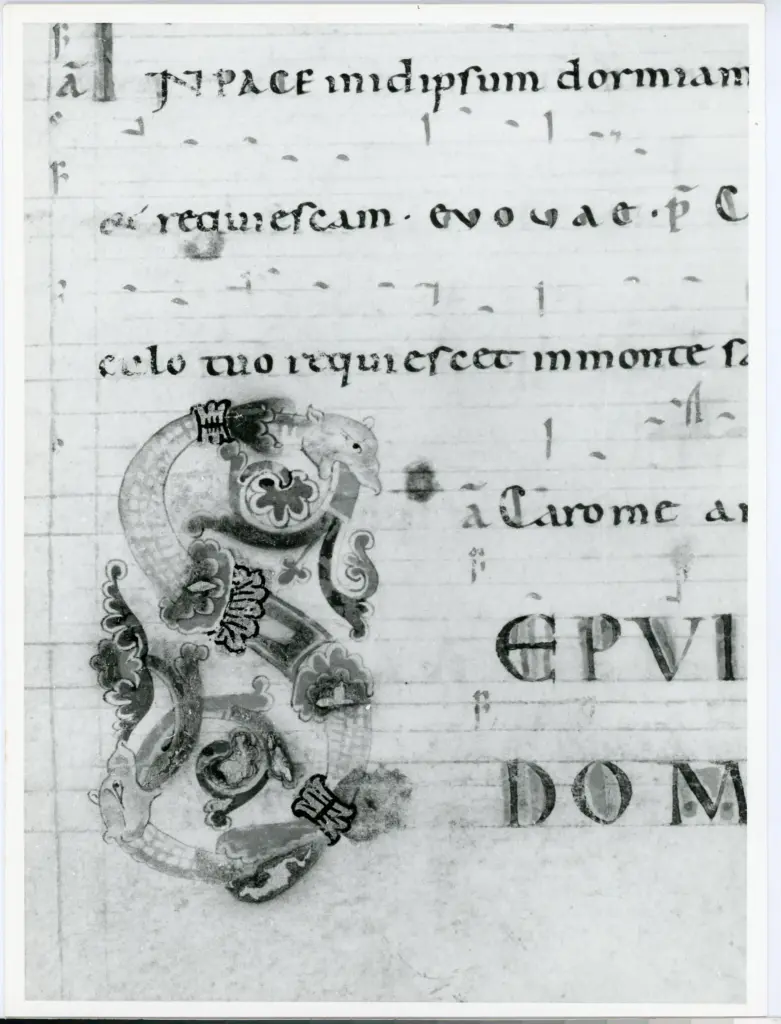 ā IN PACE inidipsum dormiam
et requiescam · evovae · p̄ C
culo tuo requiescet inmonte sa
ā Caro me ar
S EPULT
DOM